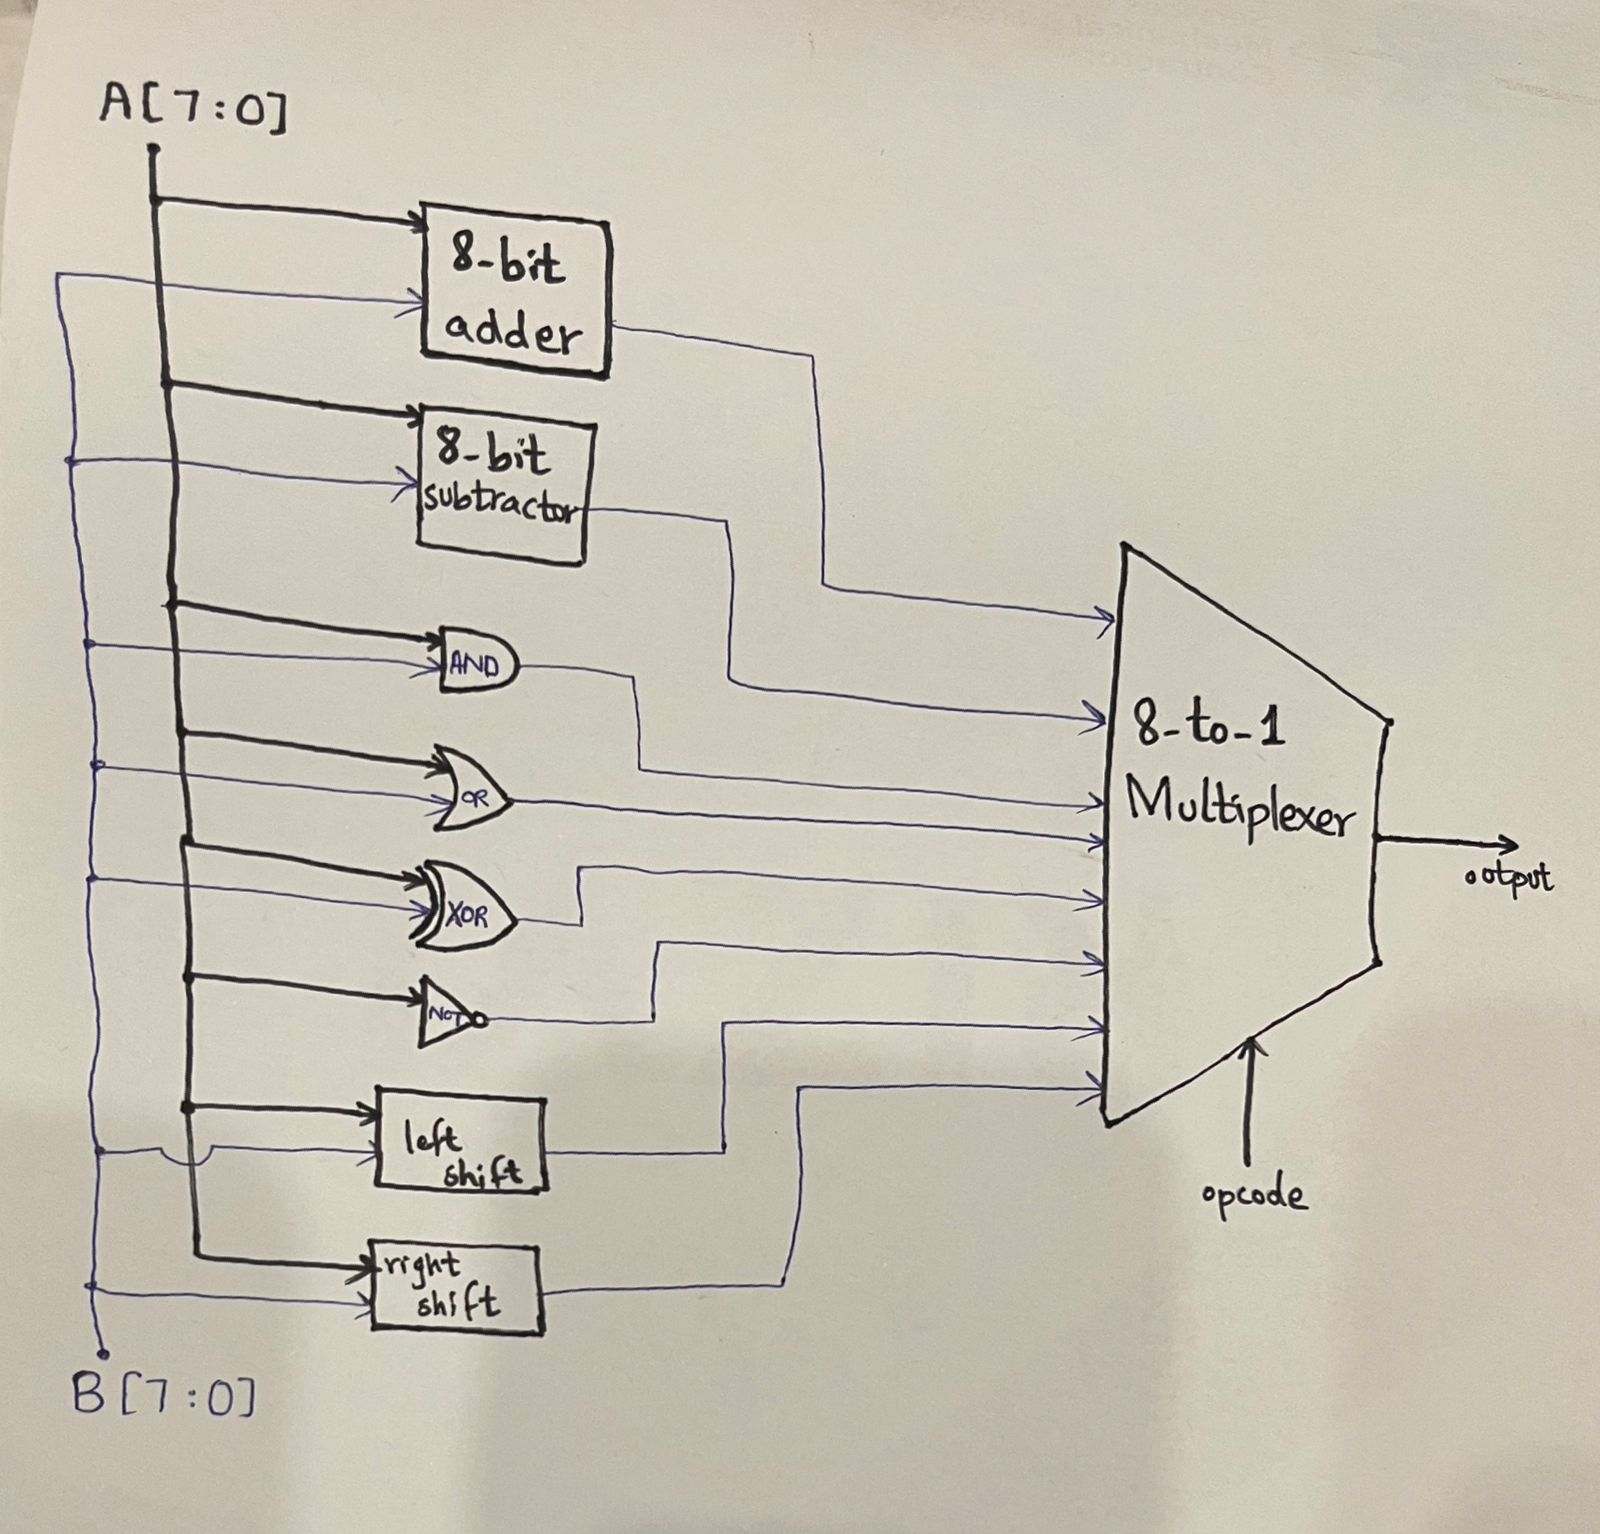 A[7:0]
8-bit
adder
8-bit
subtractor
AND
OR
XOR
NOT
left
shift
right
shift
B[7:0]
8-to-1
Multiplexer
output
opcode